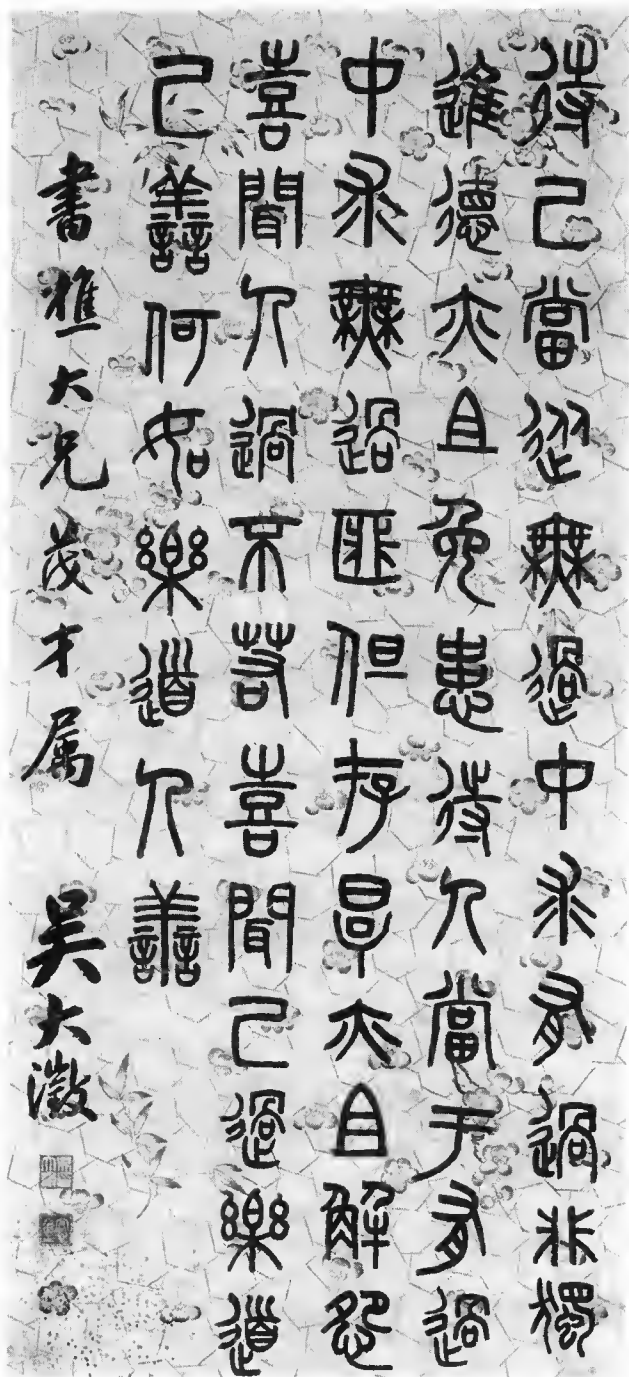 待己當從無過中求有過非獨
進德亦且免患待人當于有過
中求無過匪但存厚亦且解怨
喜聞人過不若喜聞己過樂道
己善何如樂道人善
書樵大兄茂才属 吳大澂